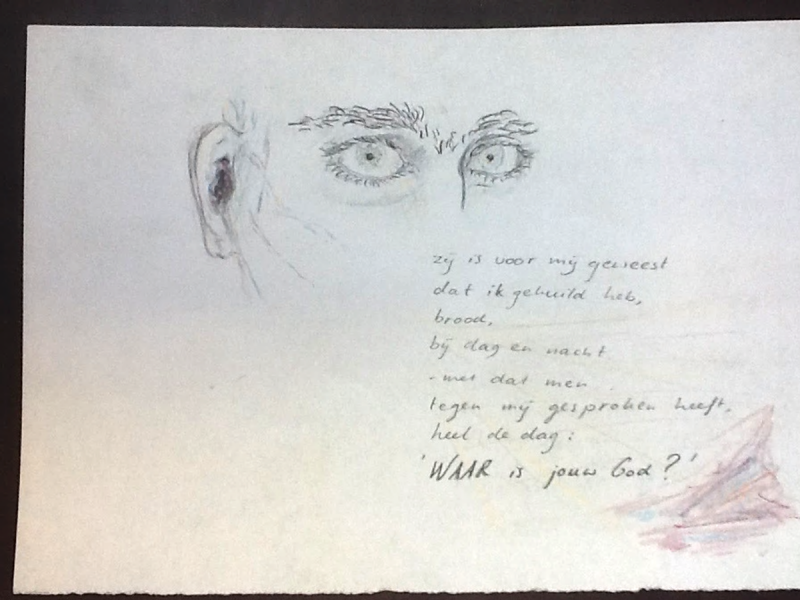 zij is voor mij geweest
dat ik gehuild heb,
brood,
bij dag en nacht
- met dat men
tegen mij gesproken heeft,
heel de dag:
'WAAR is jouw God?'